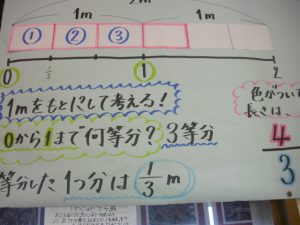 2m
1m 1m
① ② ③
0 1/3 1 2
1mをもとにして考える!
0から1まで何等分? 3等分
等分した1つ分は 1/3 m
色がついて
長さは、
4/3